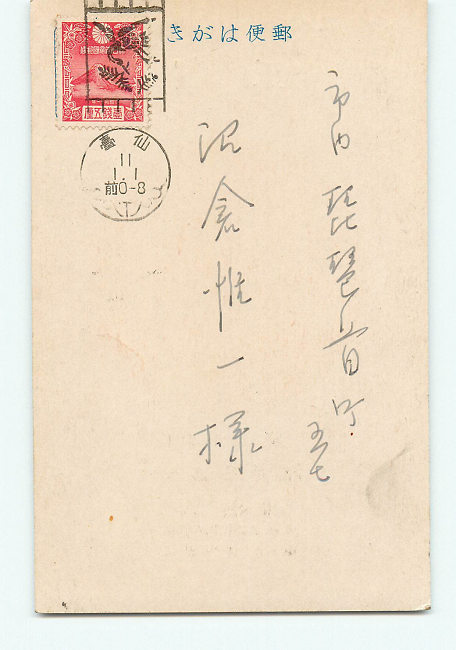 郵便はがき
市内 琵琶首町
五七
沼倉惟一様
壹錢五厘
仙臺
11
1.1
前0-8